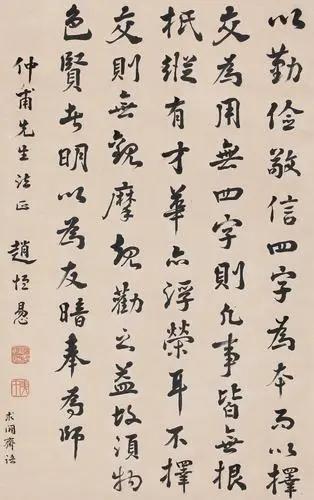 以勤儉敬信四字為本而以擇
交為用無四字則凡事皆無根
柢縱有才華亦浮榮耳不擇
交則無觀摩規勸之益故須物
色賢者明以為友暗奉為師
仲甫先生法正
趙恒惕
求闕齋語